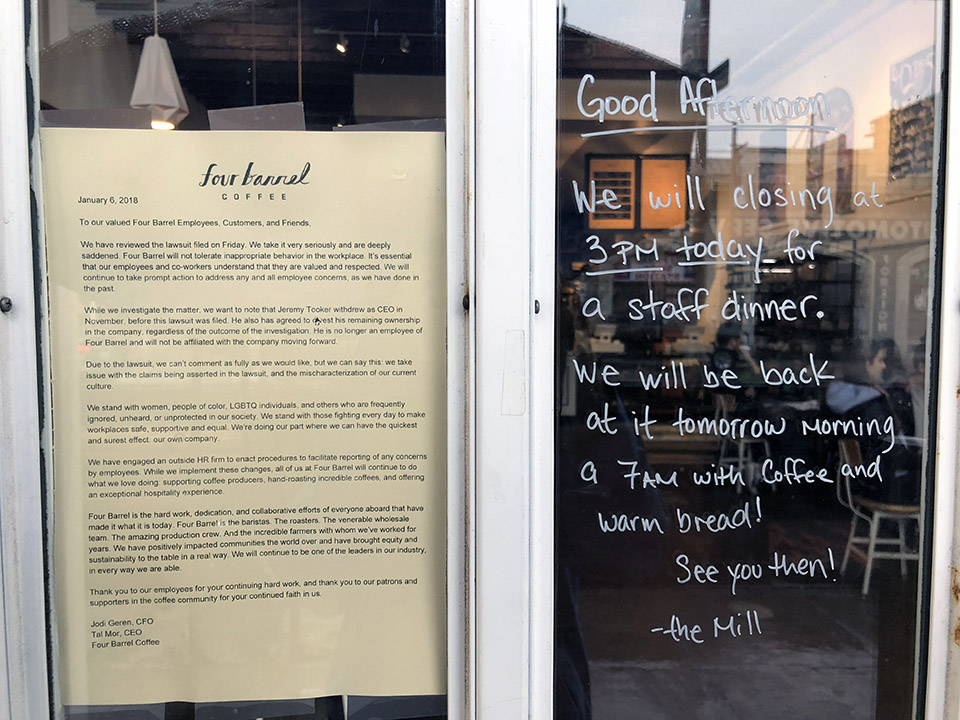 four barrel
COFFEE
January 6, 2018
To our valued Four Barrel Employees, Customers, and Friends,
We have reviewed the lawsuit filed on Friday. We take it very seriously and are deeply
saddened. Four Barrel will not tolerate inappropriate behavior in the workplace. It's essential
that our employees and co-workers understand that they are valued and respected. We will
continue to take prompt action to address any and all employee concerns, as we have done in
the past.
While we investigate the matter, we want to note that Jeremy Tooker withdrew as CEO in
November, before this lawsuit was filed. He also has agreed to divest his remaining ownership
in the company, regardless of the outcome of the investigation. He is no longer an employee of
Four Barrel and will not be affiliated with the company moving forward.
Due to the lawsuit, we can't comment as fully as we would like, but we can say this: we take
issue with the claims being asserted in the lawsuit, and the mischaracterization of our current
culture.
We stand with women, people of color, LGBTQ individuals, and others who are frequently
ignored, unheard, or unprotected in our society. We stand with those fighting every day to make
workplaces safe, supportive and equal. We're doing our part where we can have the quickest
and surest effect: our own company.
We have engaged an outside HR firm to enact procedures to facilitate reporting of any concerns
by employees. While we implement these changes, all of us at Four Barrel will continue to do
what we love doing: supporting coffee producers, hand-roasting incredible coffees, and offering
an exceptional hospitality experience.
Four Barrel is the hard work, dedication, and collaborative efforts of everyone aboard that have
made it what it is today. Four Barrel is the baristas. The roasters. The venerable wholesale
team. The amazing production crew. And the incredible farmers with whom we've worked for
years. We have positively impacted communities the world over and have brought equity and
sustainability to the table in a real way. We will continue to be one of the leaders in our industry,
in every way we are able.
Thank you to our employees for your continuing hard work, and thank you to our patrons and
supporters in the coffee community for your continued faith in us.
Jodi Geren, CFO
Tal Mor, CEO
Four Barrel Coffee
Good Afternoon
We will closing at
3PM today for
a staff dinner.
We will be back
at it tomorrow morning
a 7AM with Coffee and
warm bread!
See you then!
-the Mill